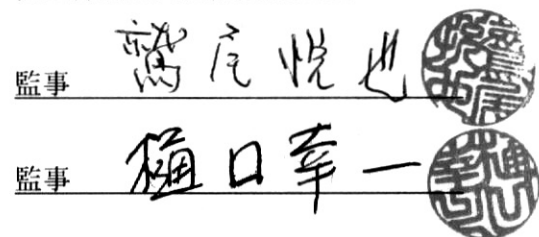 監事 鷲尾悦也
監事 樋口幸一